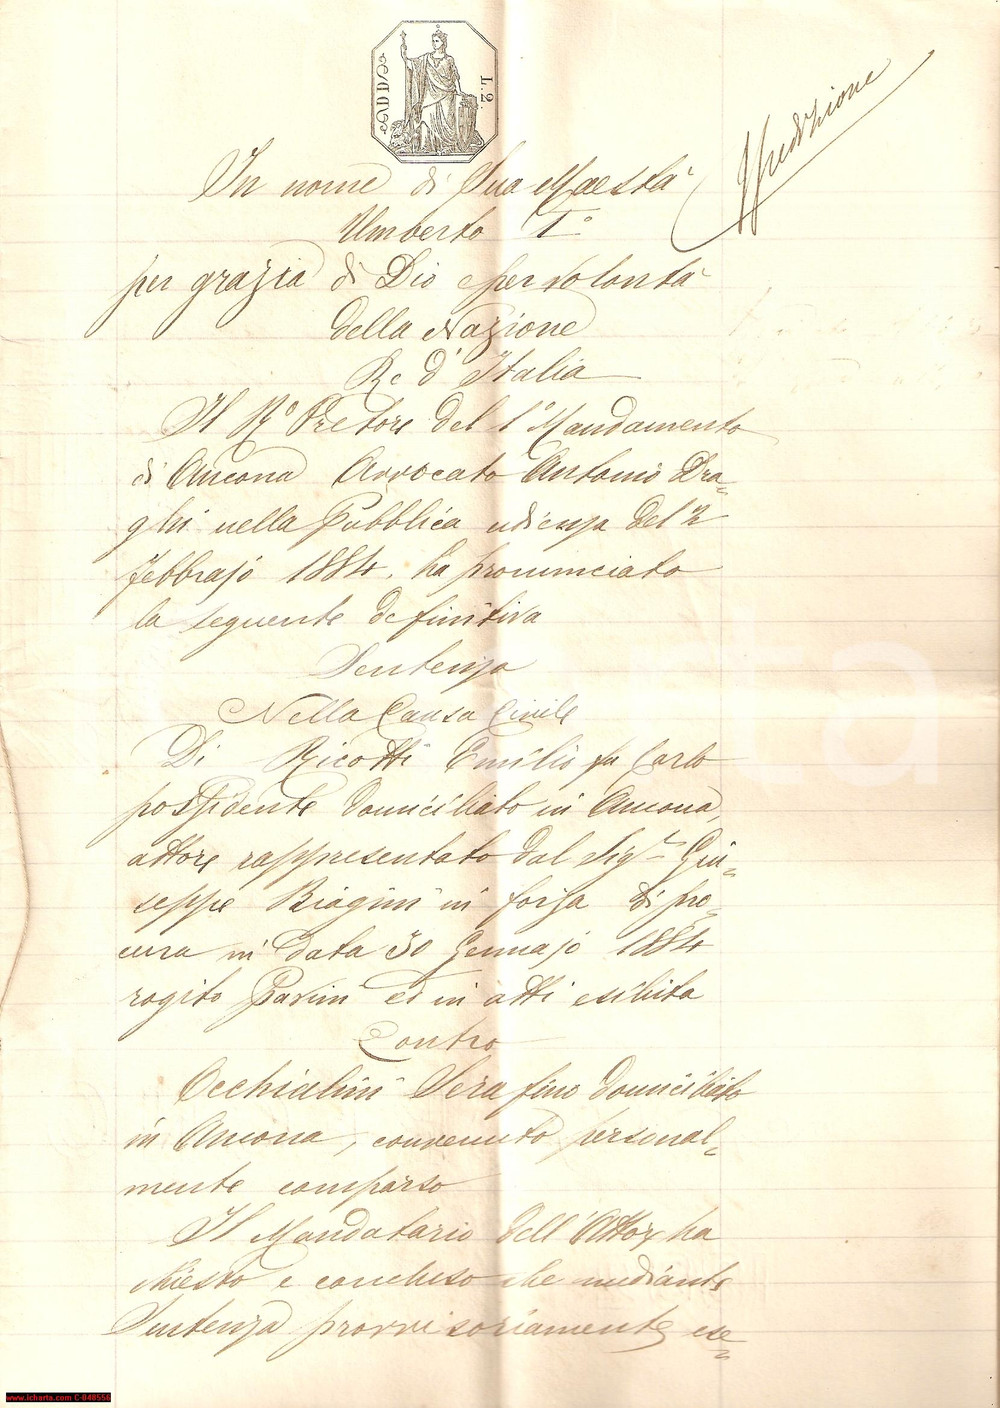 L. 2.
Spedizione
In nome di Sua Maestà
Umberto I°
per grazia di Dio e per volontà
della Nazione
Re d'Italia
Il R° Pretore del 1° Mandamento
di Ancona Avvocato Antonio Dra=
ghi nella Pubblica udienza del 2
Febbrajo 1884. ha pronunciato
la seguente definitiva
Sentenza
Nella Causa Civile
Di Ricotti Emilio fu Carlo
possidente domiciliato in Ancona,
attore rappresentato dal Sigr Giu=
seppe Biagini in forza di pro=
cura in data 30 Gennajo 1884
rogito Pavini ed in atti esibita
Contro
Occhialini Serafino domiciliato
in Ancona, convenuto personal=
mente comparso
Il Mandatario dell'Attore ha
chiesto e concluso che mediante
Sentenza provvisoriamente ese=
www.icharta.com C-040556